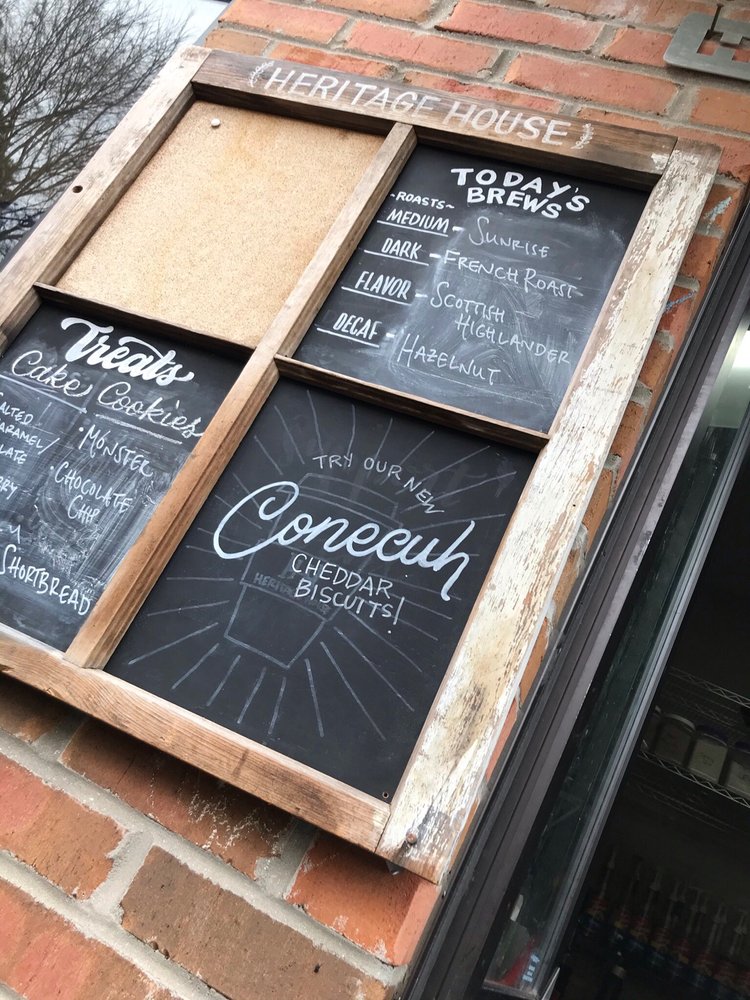 HERITAGE HOUSE
TODAY'S
BREWS
~ROASTS~
MEDIUM - SUNRISE
DARK - FRENCH ROAST
FLAVOR - SCOTTISH
HIGHLANDER
DECAF - HAZELNUT
Treats
Cake Cookies
• MONSTER
• CHOCOLATE
CHIP
SHORTBREAD
TRY OUR NEW
Conecuh
CHEDDAR
BISCUITS!